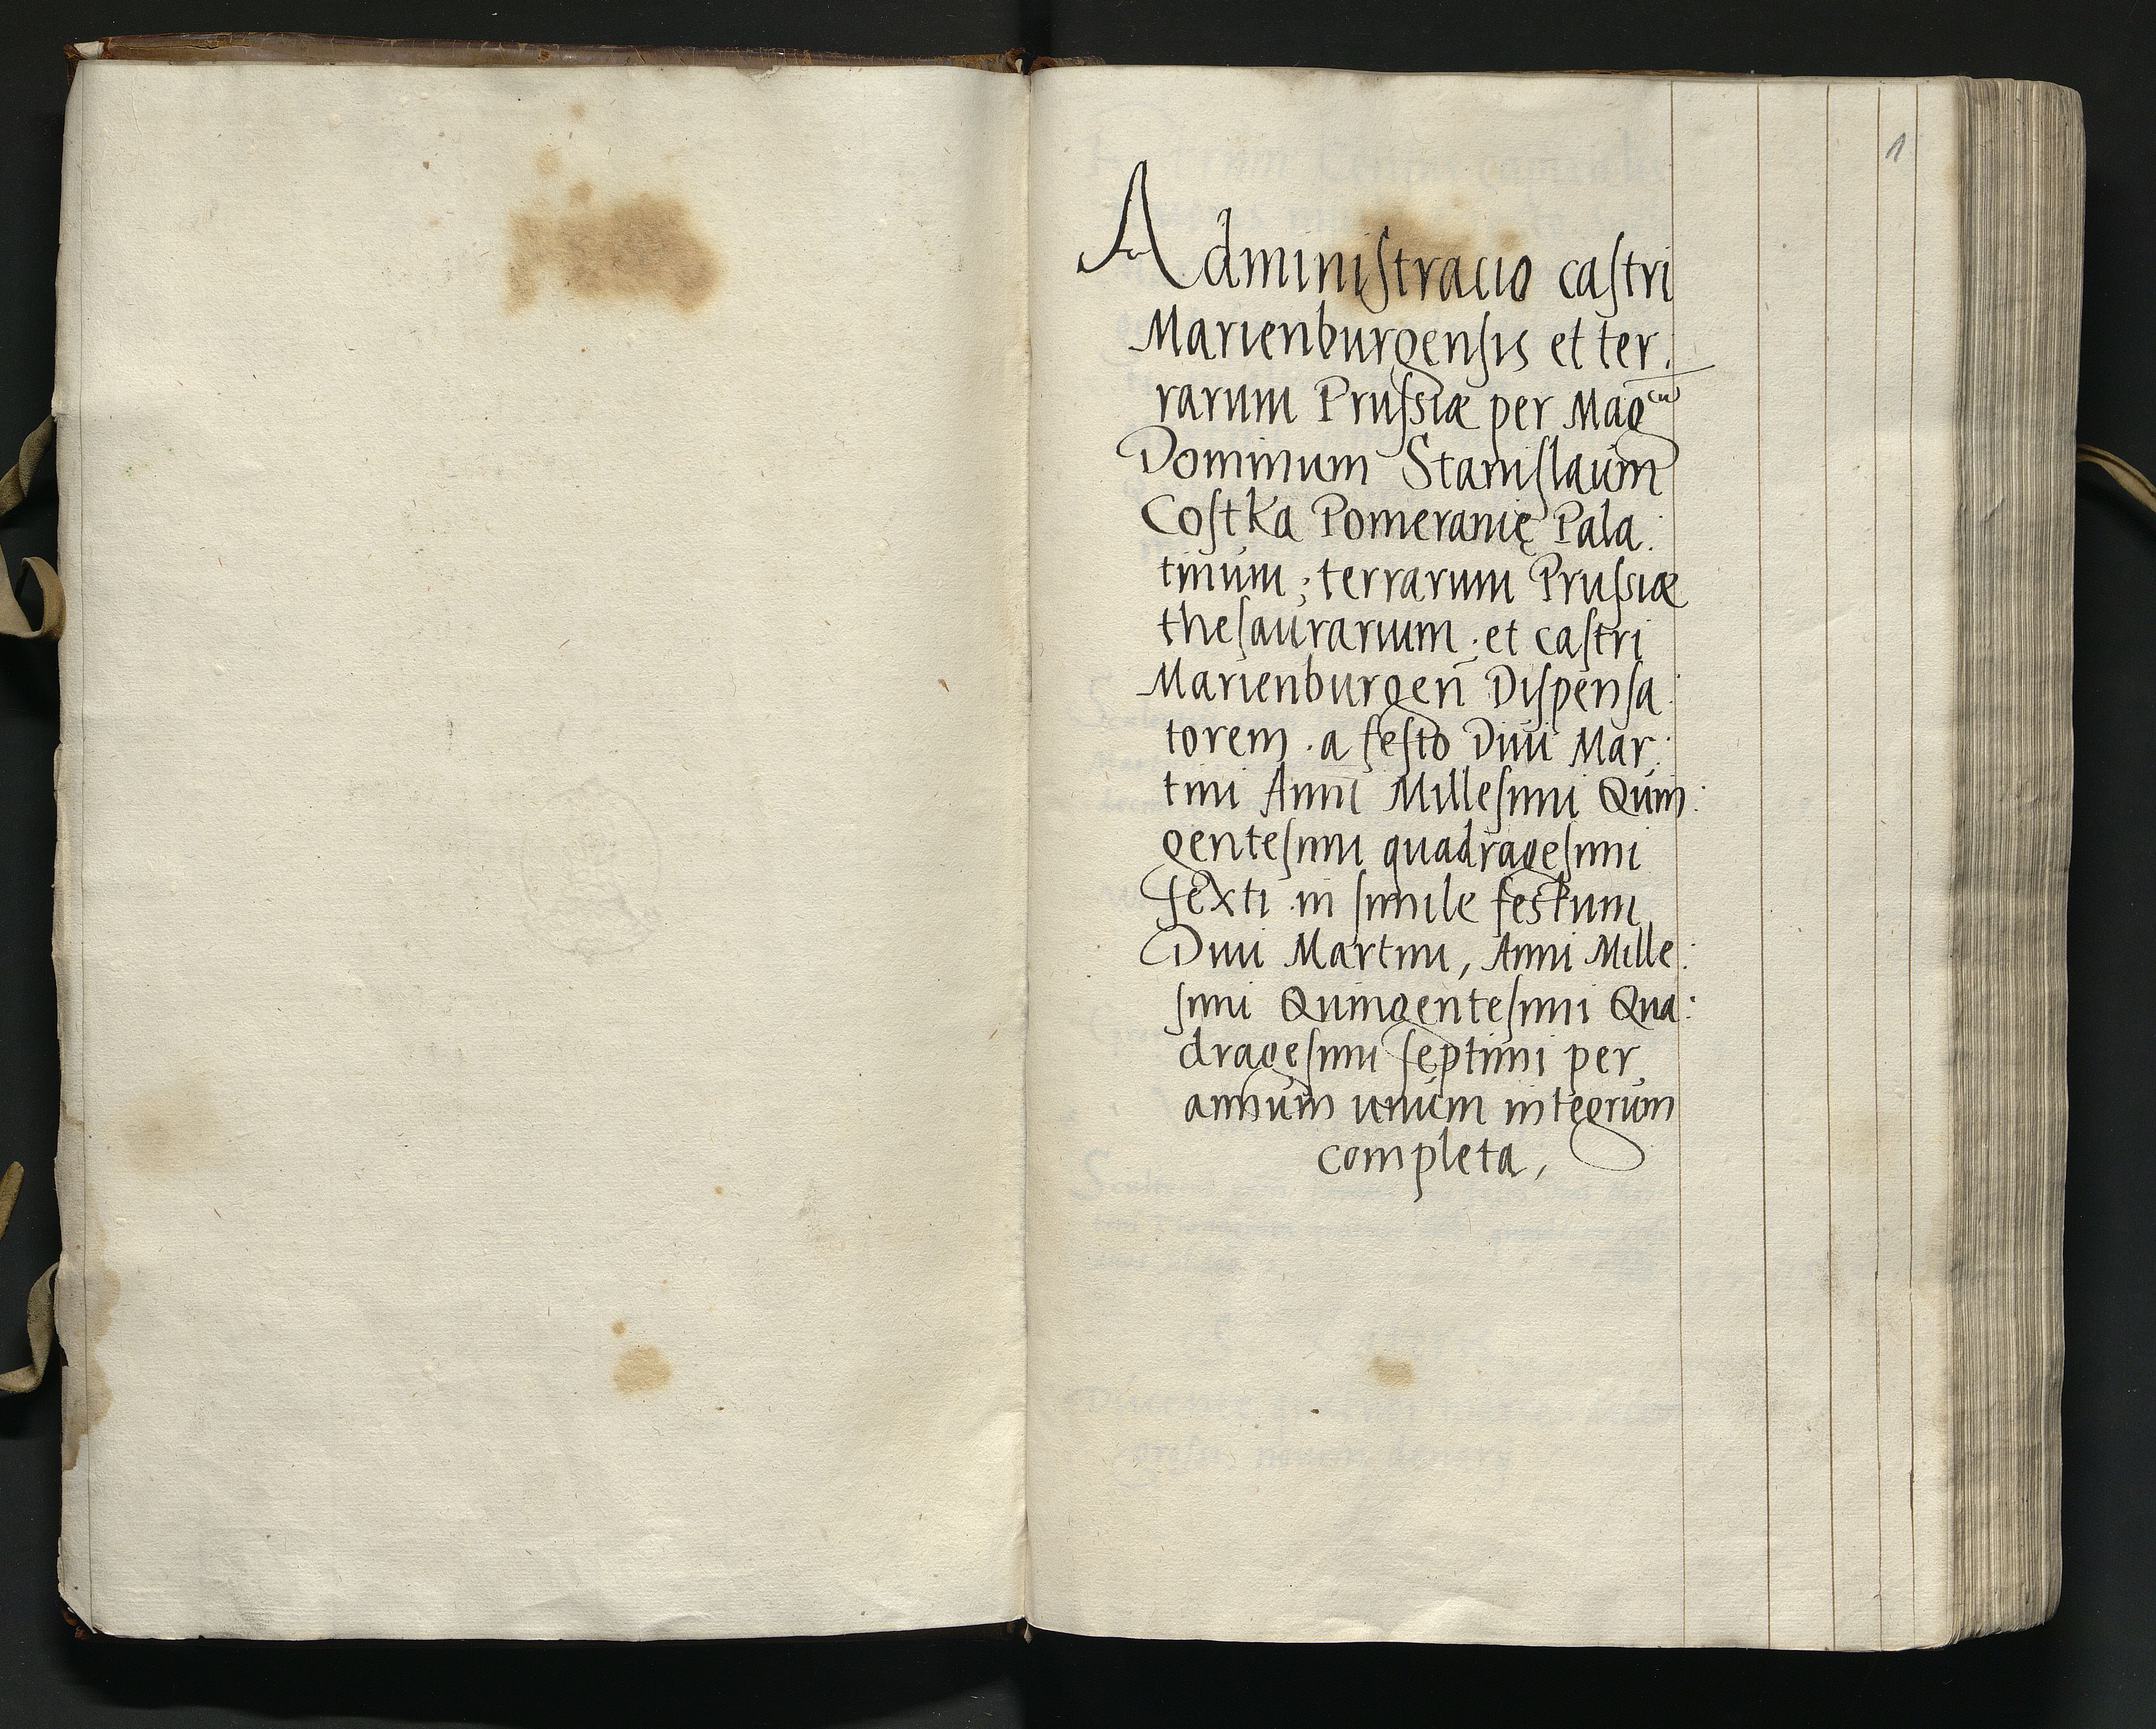 1
Administracio castri
Marienburgensis et ter.
rarum Prussiæ per Mag^cu
Dominum Stanislaum
Costka Pomeranię Pala:
tinum; terrarum Prussiæ
thesaurarium; et castri
Marienburgeñ Dispensa:
torem. a festo Diui Mar:
tini Anni Millesimi Quin:
gentesimi quadragesimi
sexti in simile festum
Diui Martini, Anni Mille:
simi Quingentesimi Qua:
dragesimi septimi per
annum unum integrum
completa,